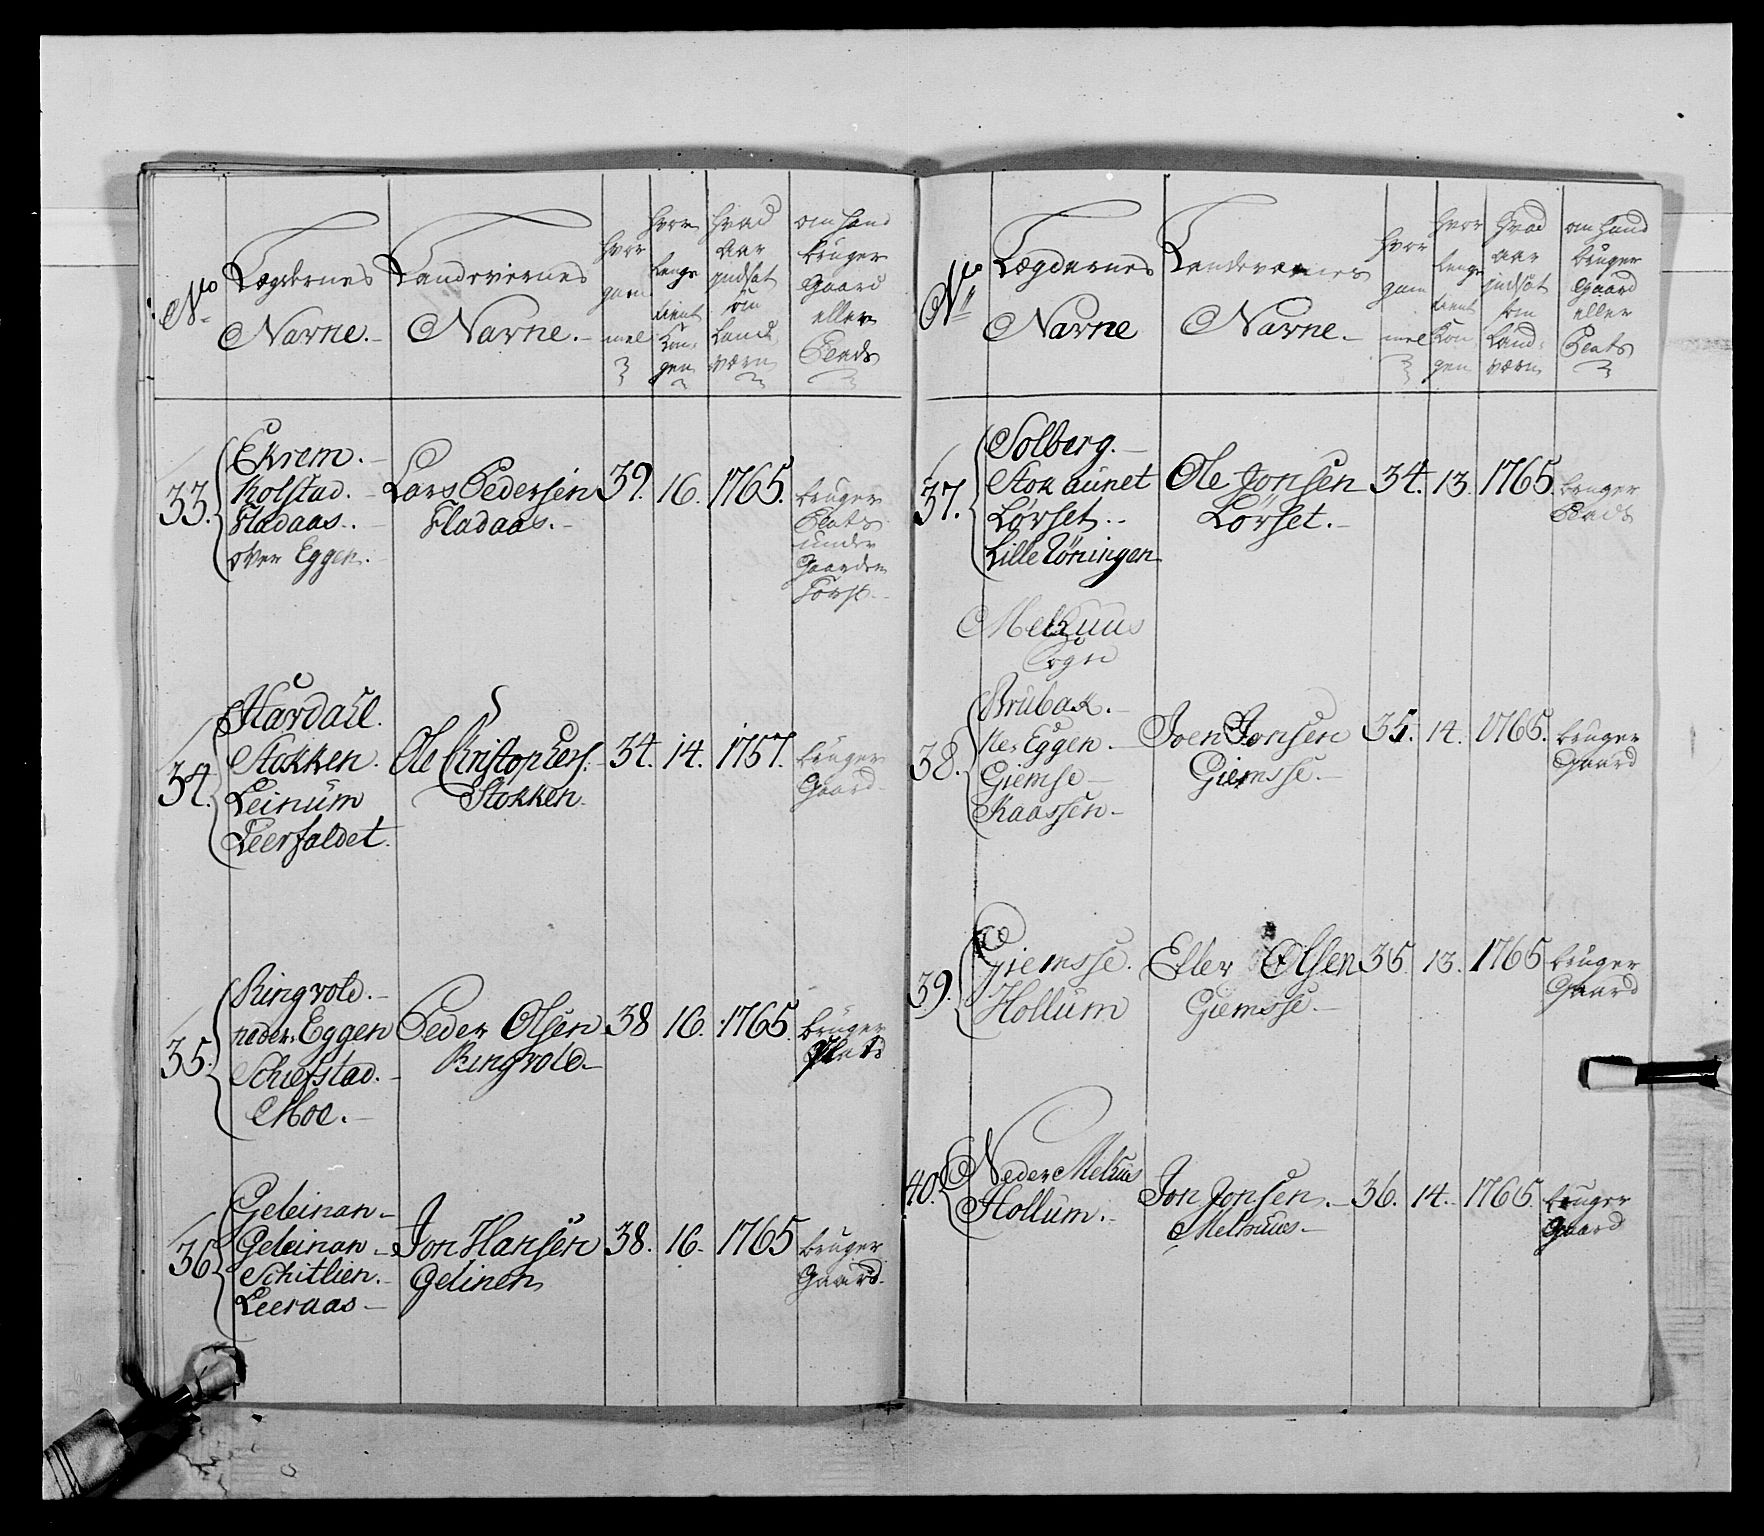 No
Lægdernes
Navne.
Landevernes
Navne.
hvor
gam
mel
hvor
lenge
tient
Kon-
gen
hvad
Aar
indsat
om
Land
værn
om hand
bruger
Gaard
eller
Plads
33.
Ekrem.
Kolstad.
Fladaas.
over Eggen.
Lars Pedersen
Fladaas.
39.
16.
1765.
bruger
Plats
under
Gaarden
34.
Hårdahl.
Stokken.
Leinum
Leerfaldet.
Ole Christophers.
Stokken.
34.
14.
1757.
bruger
Gaard
35.
Ringvold.
neder Eggen
Schiefstad.
Moe.
Peder Olsen
Ringvold
38
16.
1765.
bruger
Plads
36
Geleinan
Geleinan
Schitlien.
Leeraas
Jon Hansen
Gelinen
38.
16.
1765
bruger
Gaard
No
Lægdernes
Navne
Landevernes
Navne.
hvor
gam
mel
hvor
lenge
tient
Kon
gen
hvad
aar
indsat
som
Land-
værn
om hand
bruger
Gaard
eller
Plats
37.
Solberg.
Stokaunet
Lørset.
Lille Løningen
Ole Jonsen
Lørset.
34.
13.
1765.
bruger
Plads
Melhuus
Sogn
38.
Brubak.
Ne. Eggen
Giemse
Kaassen
Joen Jonsen
Giemsse.
35.
14.
1765.
bruger
Gaard
39.
Giemsse.
Hollum
Efler Olsen
Giemsse.
35
13.
1765
bruger
Gaard
40.
Neder Melhus
Hollum.
Jon Jonsen.
Melhuus
36.
14.
1765.
bruger
Gaard